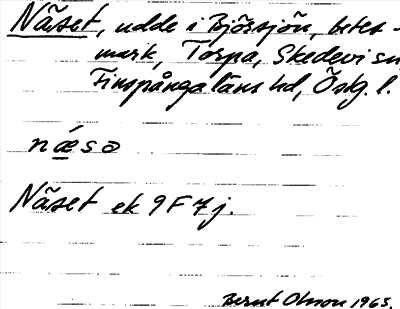 Näset, udde i Björsjön, betes-
mark, Torpa, Skedevi sn,
Finspånga läns hd, Östg. l.
næ´sa
Näset ek 9F7j.
Bernt Olsson 1965.